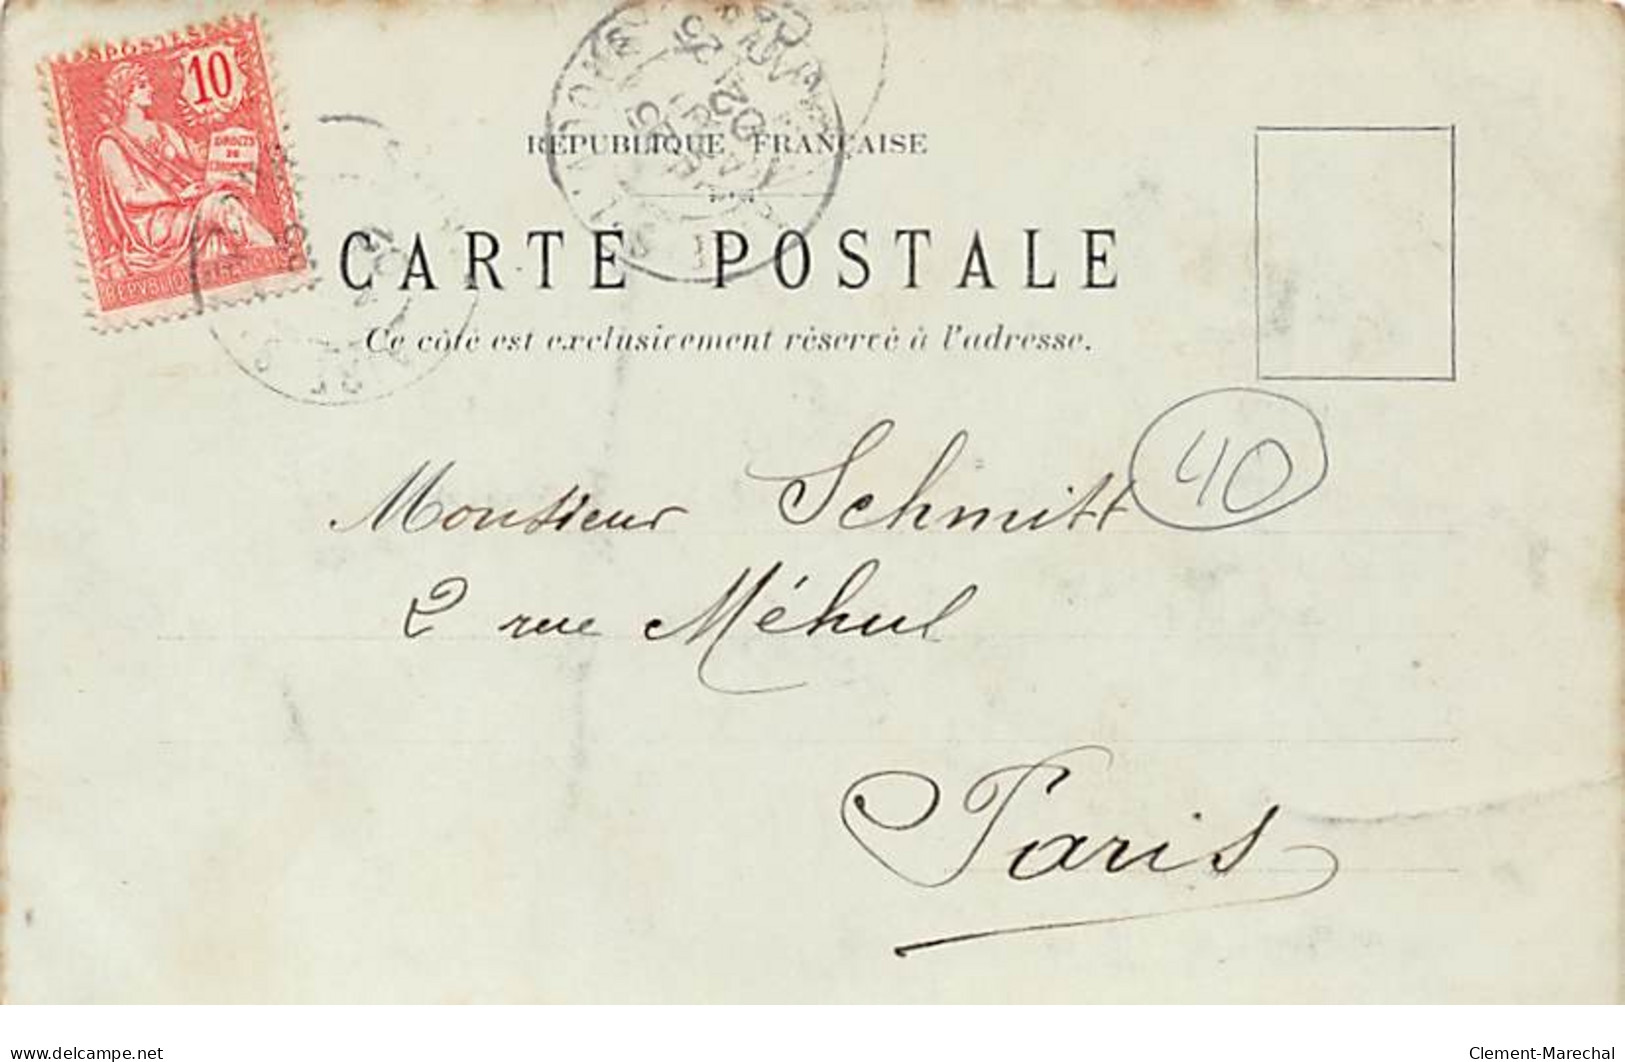 POSTES
10
DROITS
DE
L'HOMME
REPUBLIQUE FRANÇAISE
CARTE POSTALE
Ce côté est exclusivement réservé à l'adresse.
40
Monsieur Schmitt
2 rue Méhul
Paris
delcampe.net
Clement-Marechal